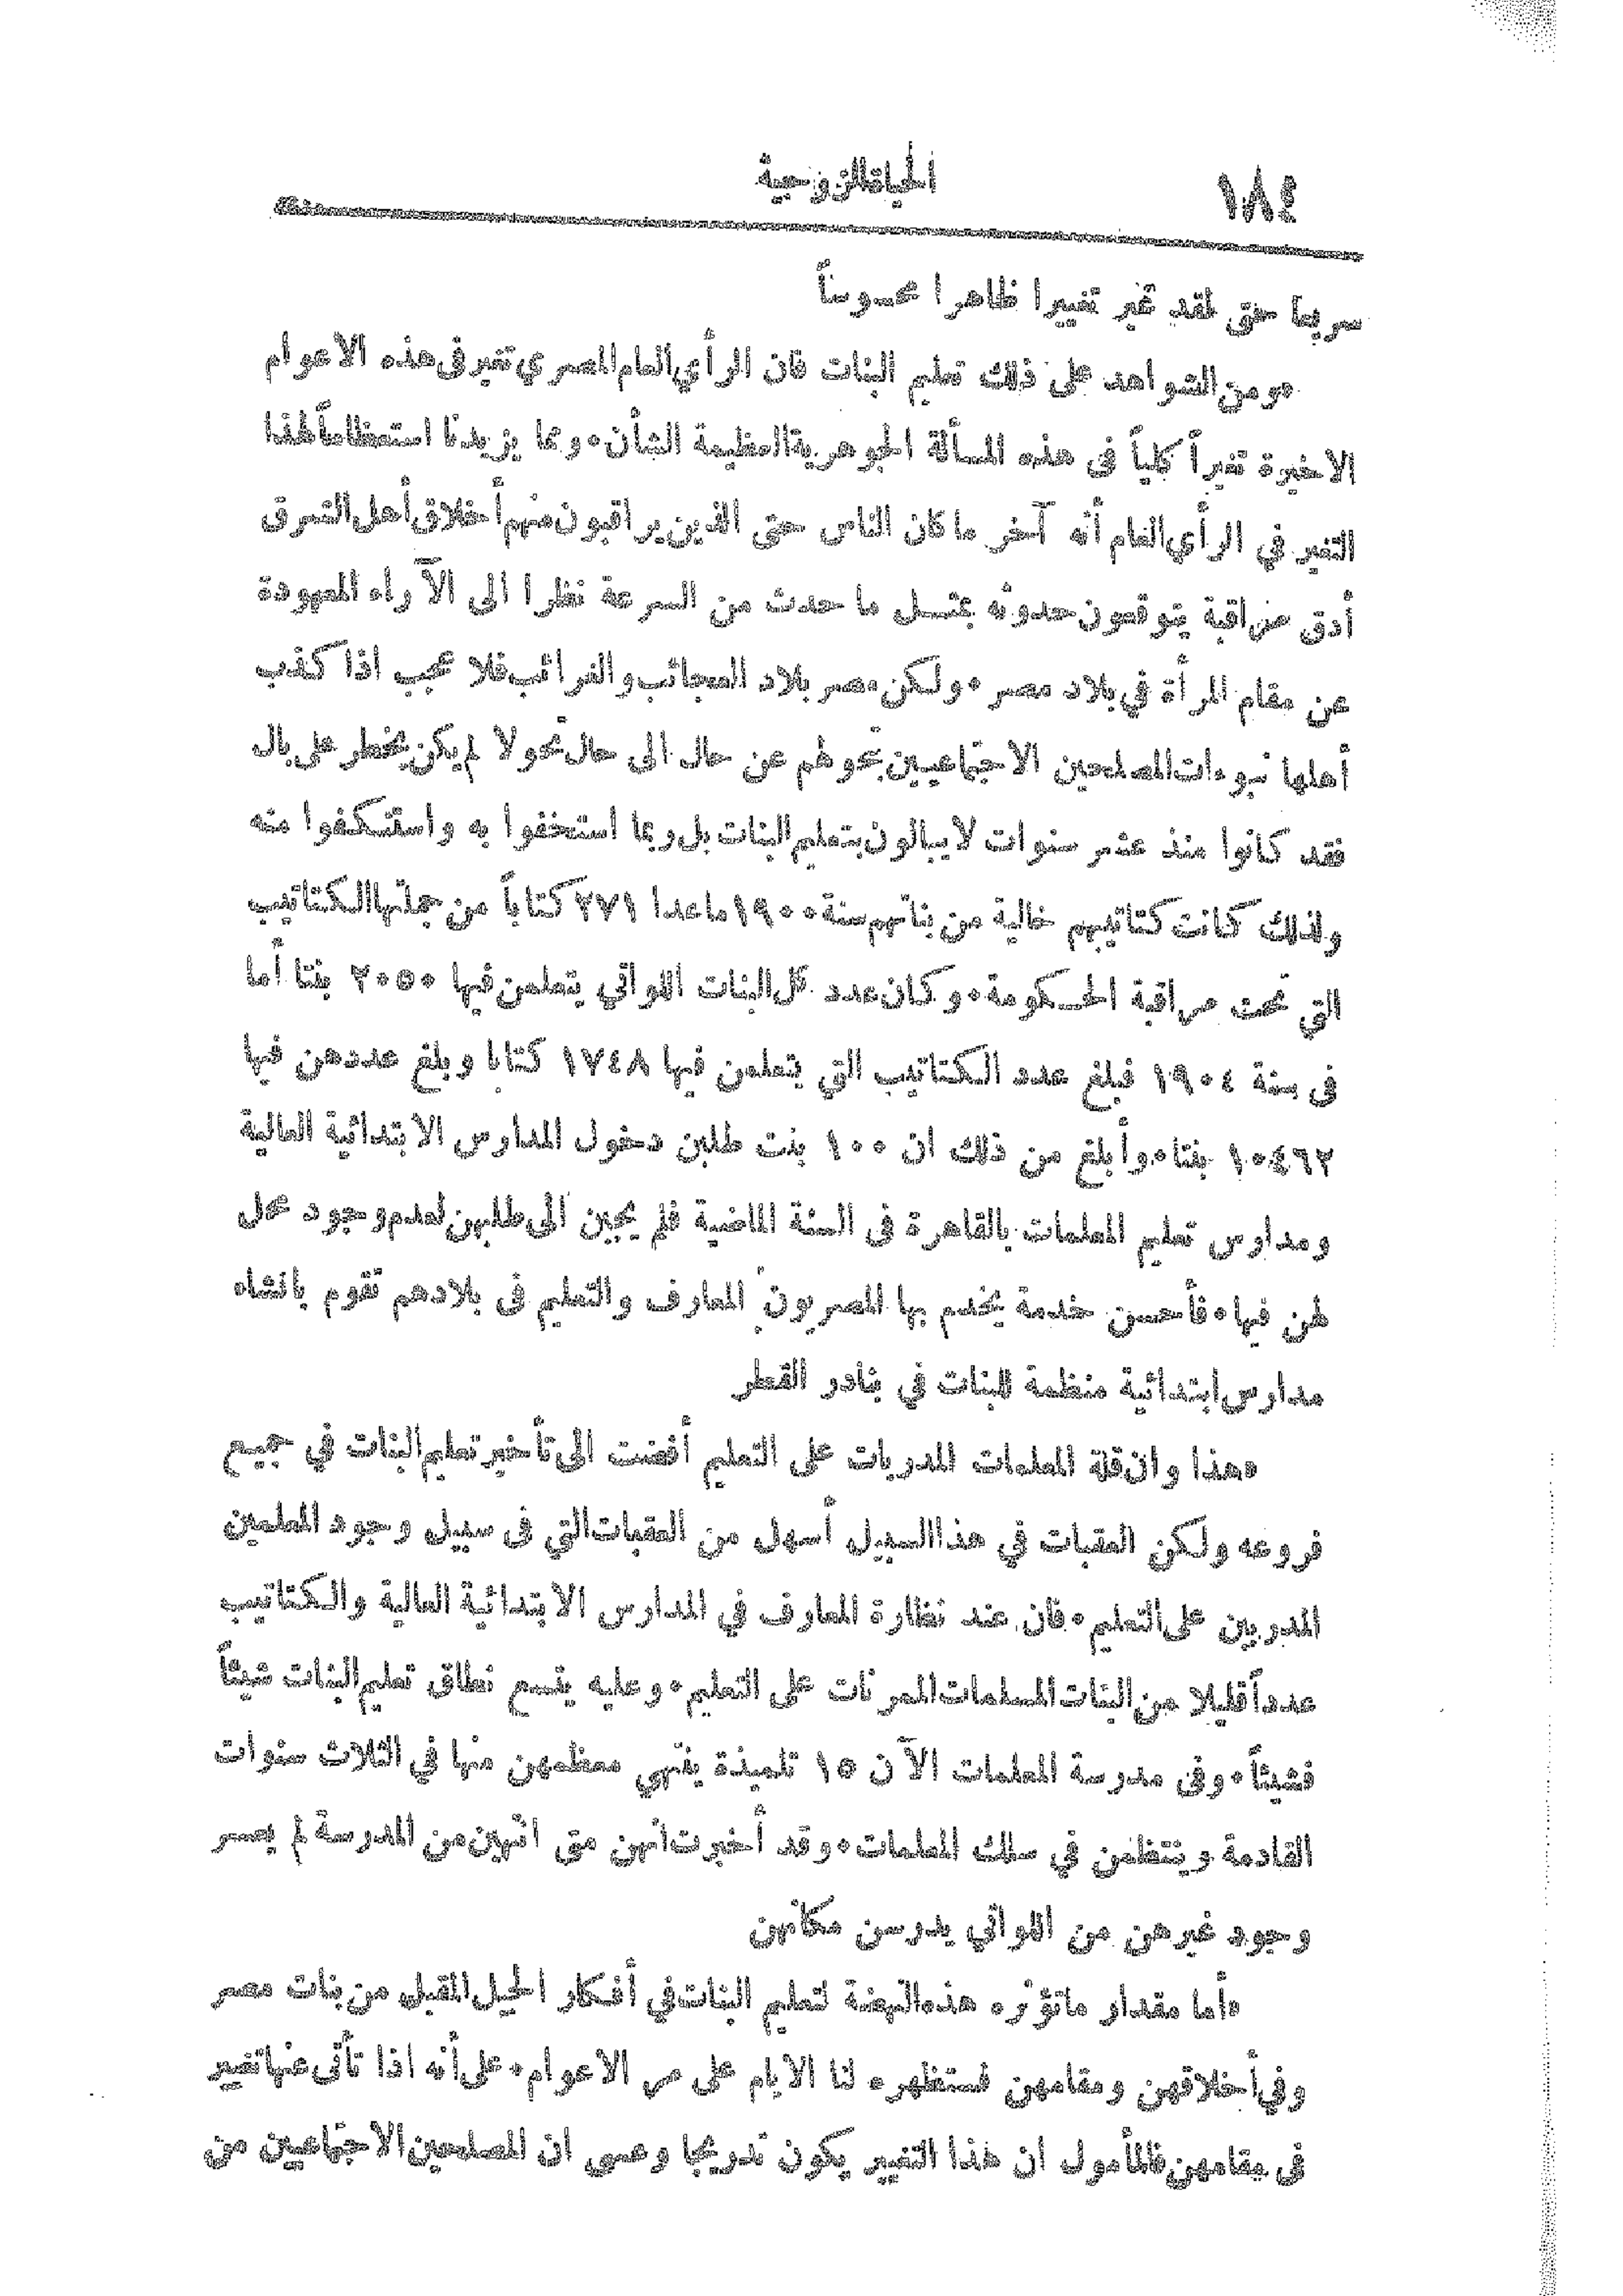 ١٨٤
الحياة الزوجية
سريعا حتى لقد تغير تغييرا ظاهرا محسوساً
«ومن الشواهد على ذلك تعليم البنات فان الرأي العام المصري تغير فى هذه الاعوام
الاخيرة تغيراً كلياً فى هذه المسألة الجوهرية العظيمة الشأن٠ ومما يزيدنا استعظاماً لهذا
التغير في الرأي العام أنه آخر ما كان الناس حتى الذين يراقبون منهم أخلاق أهل الشرق
أدق مراقبة يتوقعون حدوثه بمثل ما حدث من السرعة نظرا الى الآراء المعهودة
عن مقام المرأة في بلاد مصر٠ ولكن مصر بلاد العجائب والغرائب فلا عجب اذا كذب
أهلها نبوءات المصلحين الاجتماعيين بتحولهم عن حال الى حال تحولا لم يكن يخطر على بال
فقد كانوا منذ عشر سنوات لا يبالون بتعليم البنات بل ربما استخفوا به واستنكفوا منه
ولذلك كانت كتاتيبهم خالية من بناتهم سنة ١٩٠٠ ما عدا ٢٧١ كتاباً من جملتها الكتاتيب
التي تحت مراقبة الحكومة٠ وكان عدد كل البنات اللواتي يتعلمن فيها ٢٠٥٠ بنتا أما
فى سنة ١٩٠٤ فبلغ عدد الكتاتيب التي يتعلمن فيها ١٧٤٨ كتابا وبلغ عددهن فيها
١٠٤٦٢ بنتا٠ وأبلغ من ذلك ان ١٠٠ بنت طلبن دخول المدارس الابتدائية العالية
ومدارس تعليم المعلمات بالقاهرة فى السنة الماضية فلم يجبن الى طلبهن لعدم وجود محل
لهن فيها٠ فأحسن خدمة يخدم بها المصريون المعارف والتعليم فى بلادهم تقوم بانشاء
مدارس ابتدائية منظمة للبنات في بنادر القطر
«هذا وان قلة المعلمات المدربات على التعليم أفضت الى تأخير تعليم البنات في جميع
فروعه ولكن العقبات في هذا السبيل أسهل من العقبات التي فى سبيل وجود المعلمين
المدربين على التعليم٠ فان عند نظارة المعارف في المدارس الابتدائية العالية والكتاتيب
عدداً قليلا من البنات المسلمات الممرنات على التعليم٠ وعليه يتسع نطاق تعليم البنات شيئاً
فشيئاً٠ وفى مدرسة المعلمات الآن ١٥ تلميذة ينتهي معظمهن منها في الثلاث سنوات
القادمة وينتظمن في سلك المعلمات٠ وقد أخبرت انهن متى انتهين من المدرسة لم يعسر
وجود غيرهن من اللواتي يدرسن مكانهن
«أما مقدار ما تؤثره هذه النهضة لتعليم البنات في أفكار الجيل المقبل من بنات مصر
وفي أخلاقهن ومقامهن فستظهره لنا الايام على مر الاعوام٠ على أنه اذا تأتى عنها تغيير
فى مقامهن فالمأمول ان هذا التغيير يكون تدريجيا وعسى ان المصلحين الاجتماعيين من